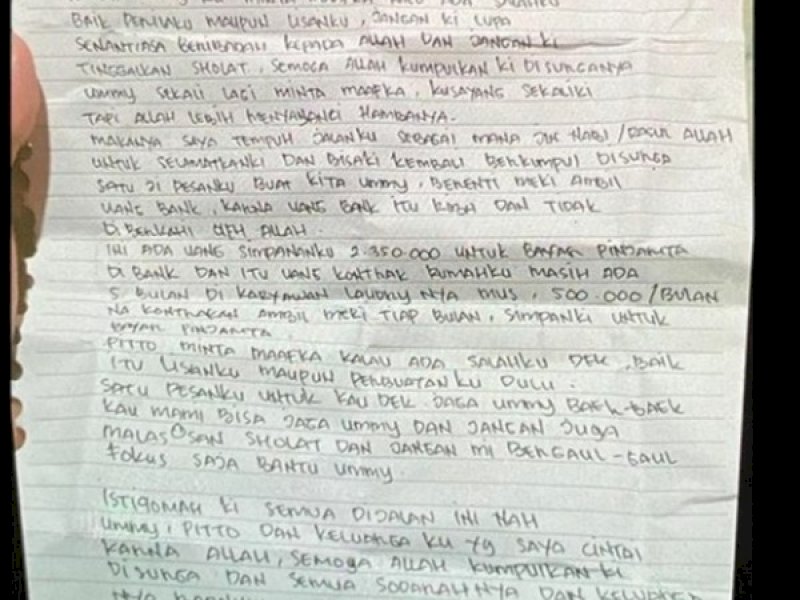 BAIK PERILAKU MAUPUN LISANKU, JANGAN KI LUPA
SENANTIASA BERIBADAH KEPADA ALLAH DAN JANGAN KI
TINGGALKAN SHOLAT, SEMOGA ALLAH KUMPULKAN KI DISURGANYA
UMMY SEKALI LAGI MINTA MAAFKA, KUSAYANG SEKALIKI
TAPI ALLAH LEBIH MENYAYANGI HAMBANYA.
MAKANYA SAYA TEMPUH JALANKU SEBAGAI MANA JLK NABI/RASUL ALLAH
UNTUK SELAMATKANKI DAN BISAKI KEMBALI BERKUMPUL DISURGA
SATU JI PESANKU BUAT KITA UMMY, BERENTI MEKI AMBIL
UANG BANK, KARNA UANG BANK ITU RIBA DAN TIDAK
DIBERKAHI OLEH ALLAH.
INI ADA UANG SIMPANANKU 2.350.000 UNTUK BAYAR PINJAMTA
DI BANK DAN ITU UANG KONTRAK RUMAHKU MASIH ADA
5 BULAN DI KARYAWAN LAUNDRY NYA MUS, 500.000/BULAN
NA KONTRAKAN AMBIL MEKI TIAP BULAN, SIMPANKI UNTUK
BAYAR PINJAMTA.
PITTO MINTA MAAFKA KALAU ADA SALAHKU DEK, BAIK
ITU LISANKU MAUPUN PERBUATAN KU DULU.
SATU PESANKU UNTUK KAU DEK JAGA UMMY BAEK-BAEK
KAU MAMI BISA JAGA UMMY DAN JANGAN JUGA
MALAS2SAN SHOLAT DAN JANGAN MI BERGAUL-GAUL
FOKUS SAJA BANTU UMMY.
ISTIQOMAH KI SEMUA DIJALAN INI NAH
UMMY, PITTO DAN KELUARGA KU YG SAYA CINTAI
KARNA ALLAH, SEMOGA ALLAH KUMPULKAN KI
DISURGA DAN SEMUA SODARAHNYA DAN KELUARGA